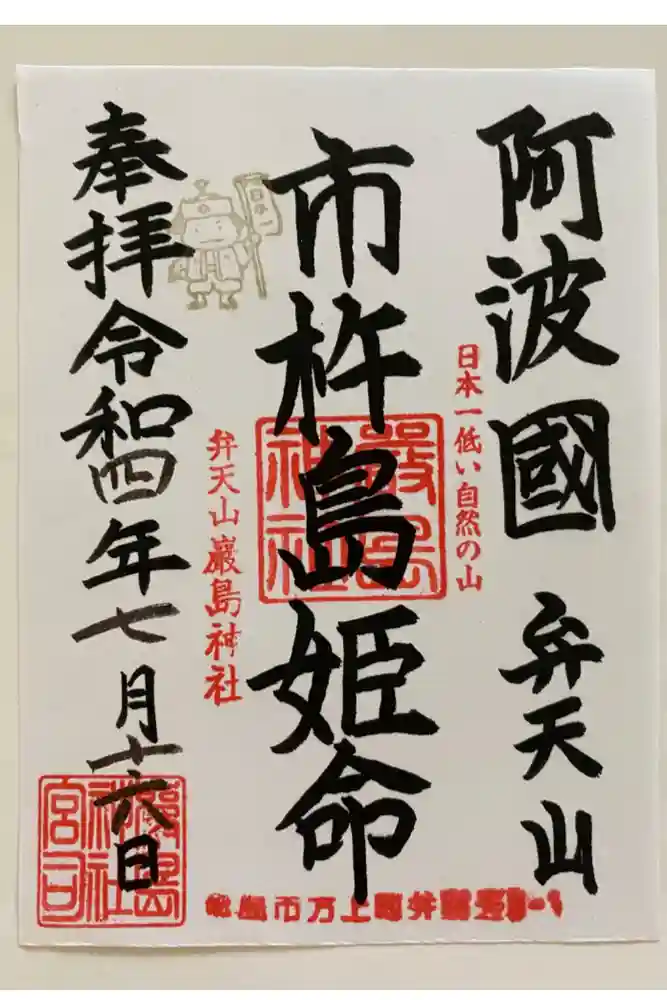 阿波國 弁天山
日本一低い自然の山
市杵島姫命
嚴島神社
弁天山巖島神社
日本一
奉拝令和四年七月十六日
嚴島神社宮司
市方上町弁